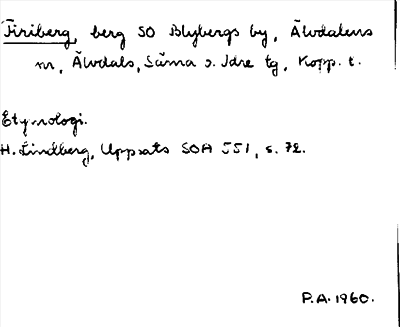 Firiberg, berg SO Blybergs by, Älvdalens
sn, Älvdals, Särna o. Idre tg, Kopp. l.
Etymologi.
H. Lindberg, Uppsats SOA 551, s. 72.
P.A. 1960.